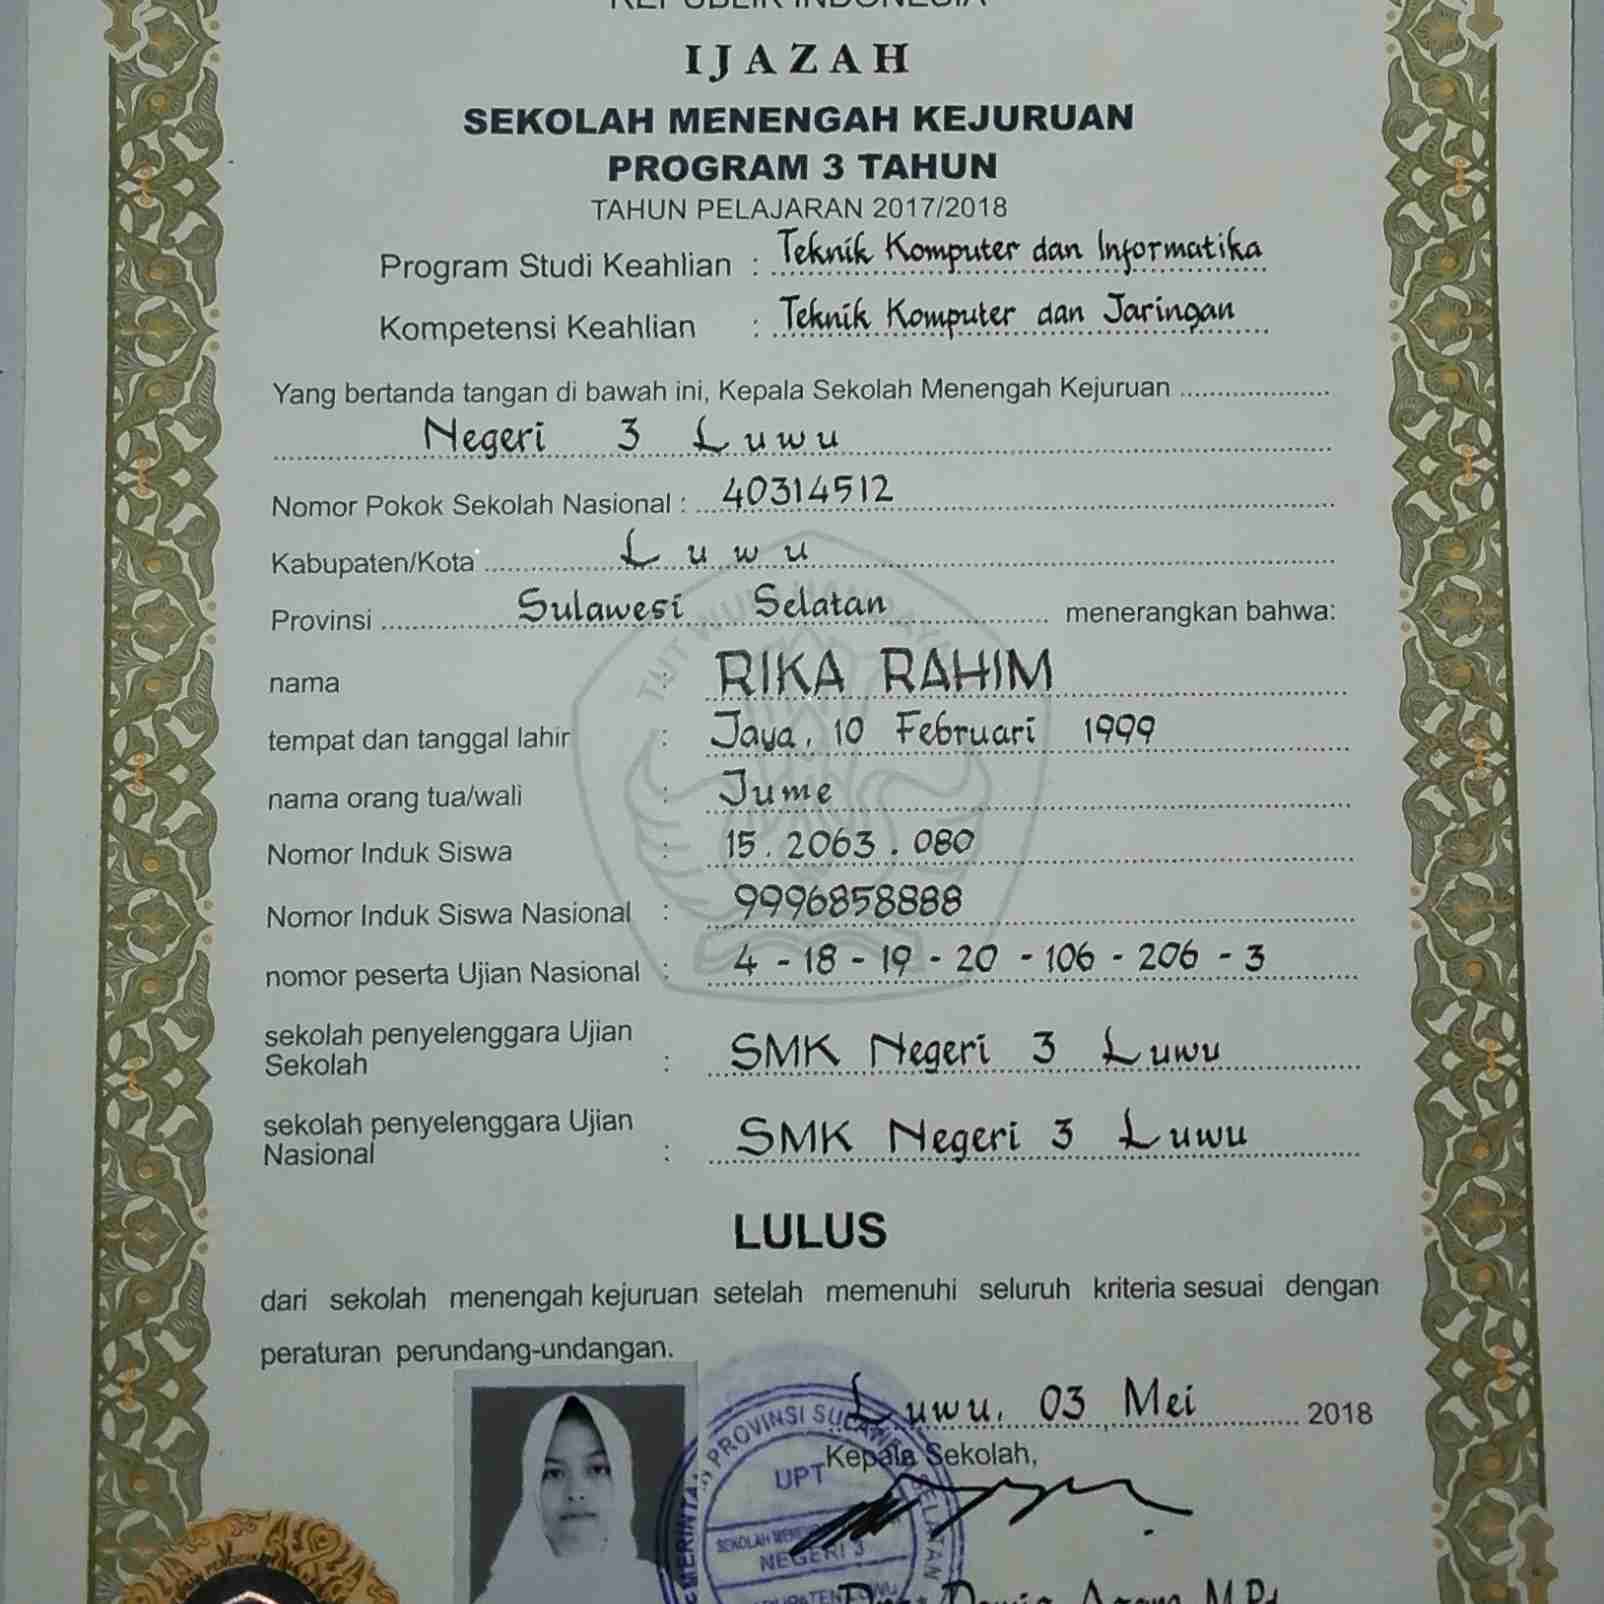 REPUBLIK INDONESIA
IJAZAH
SEKOLAH MENENGAH KEJURUAN
PROGRAM 3 TAHUN
TAHUN PELAJARAN 2017/2018
Program Studi Keahlian : Teknik Komputer dan Informatika
Kompetensi Keahlian : Teknik Komputer dan Jaringan
Yang bertanda tangan di bawah ini, Kepala Sekolah Menengah Kejuruan
Negeri 3 Luwu
Nomor Pokok Sekolah Nasional : 40314512
Kabupaten/Kota Luwu
Provinsi Sulawesi Selatan menerangkan bahwa:
nama : RIKA RAHIM
tempat dan tanggal lahir : Jaya, 10 Februari 1999
nama orang tua/wali : Jume
Nomor Induk Siswa : 15.2063.080
Nomor Induk Siswa Nasional : 9996858888
nomor peserta Ujian Nasional : 4 - 18 - 19 - 20 - 106 - 206 - 3
sekolah penyelenggara Ujian
Sekolah : SMK Negeri 3 Luwu
sekolah penyelenggara Ujian
Nasional : SMK Negeri 3 Luwu
LULUS
dari sekolah menengah kejuruan setelah memenuhi seluruh kriteria sesuai dengan
peraturan perundang-undangan.
Luwu, 03 Mei 2018
Kepala Sekolah,
UPT
NEGERI 3
M.Pd